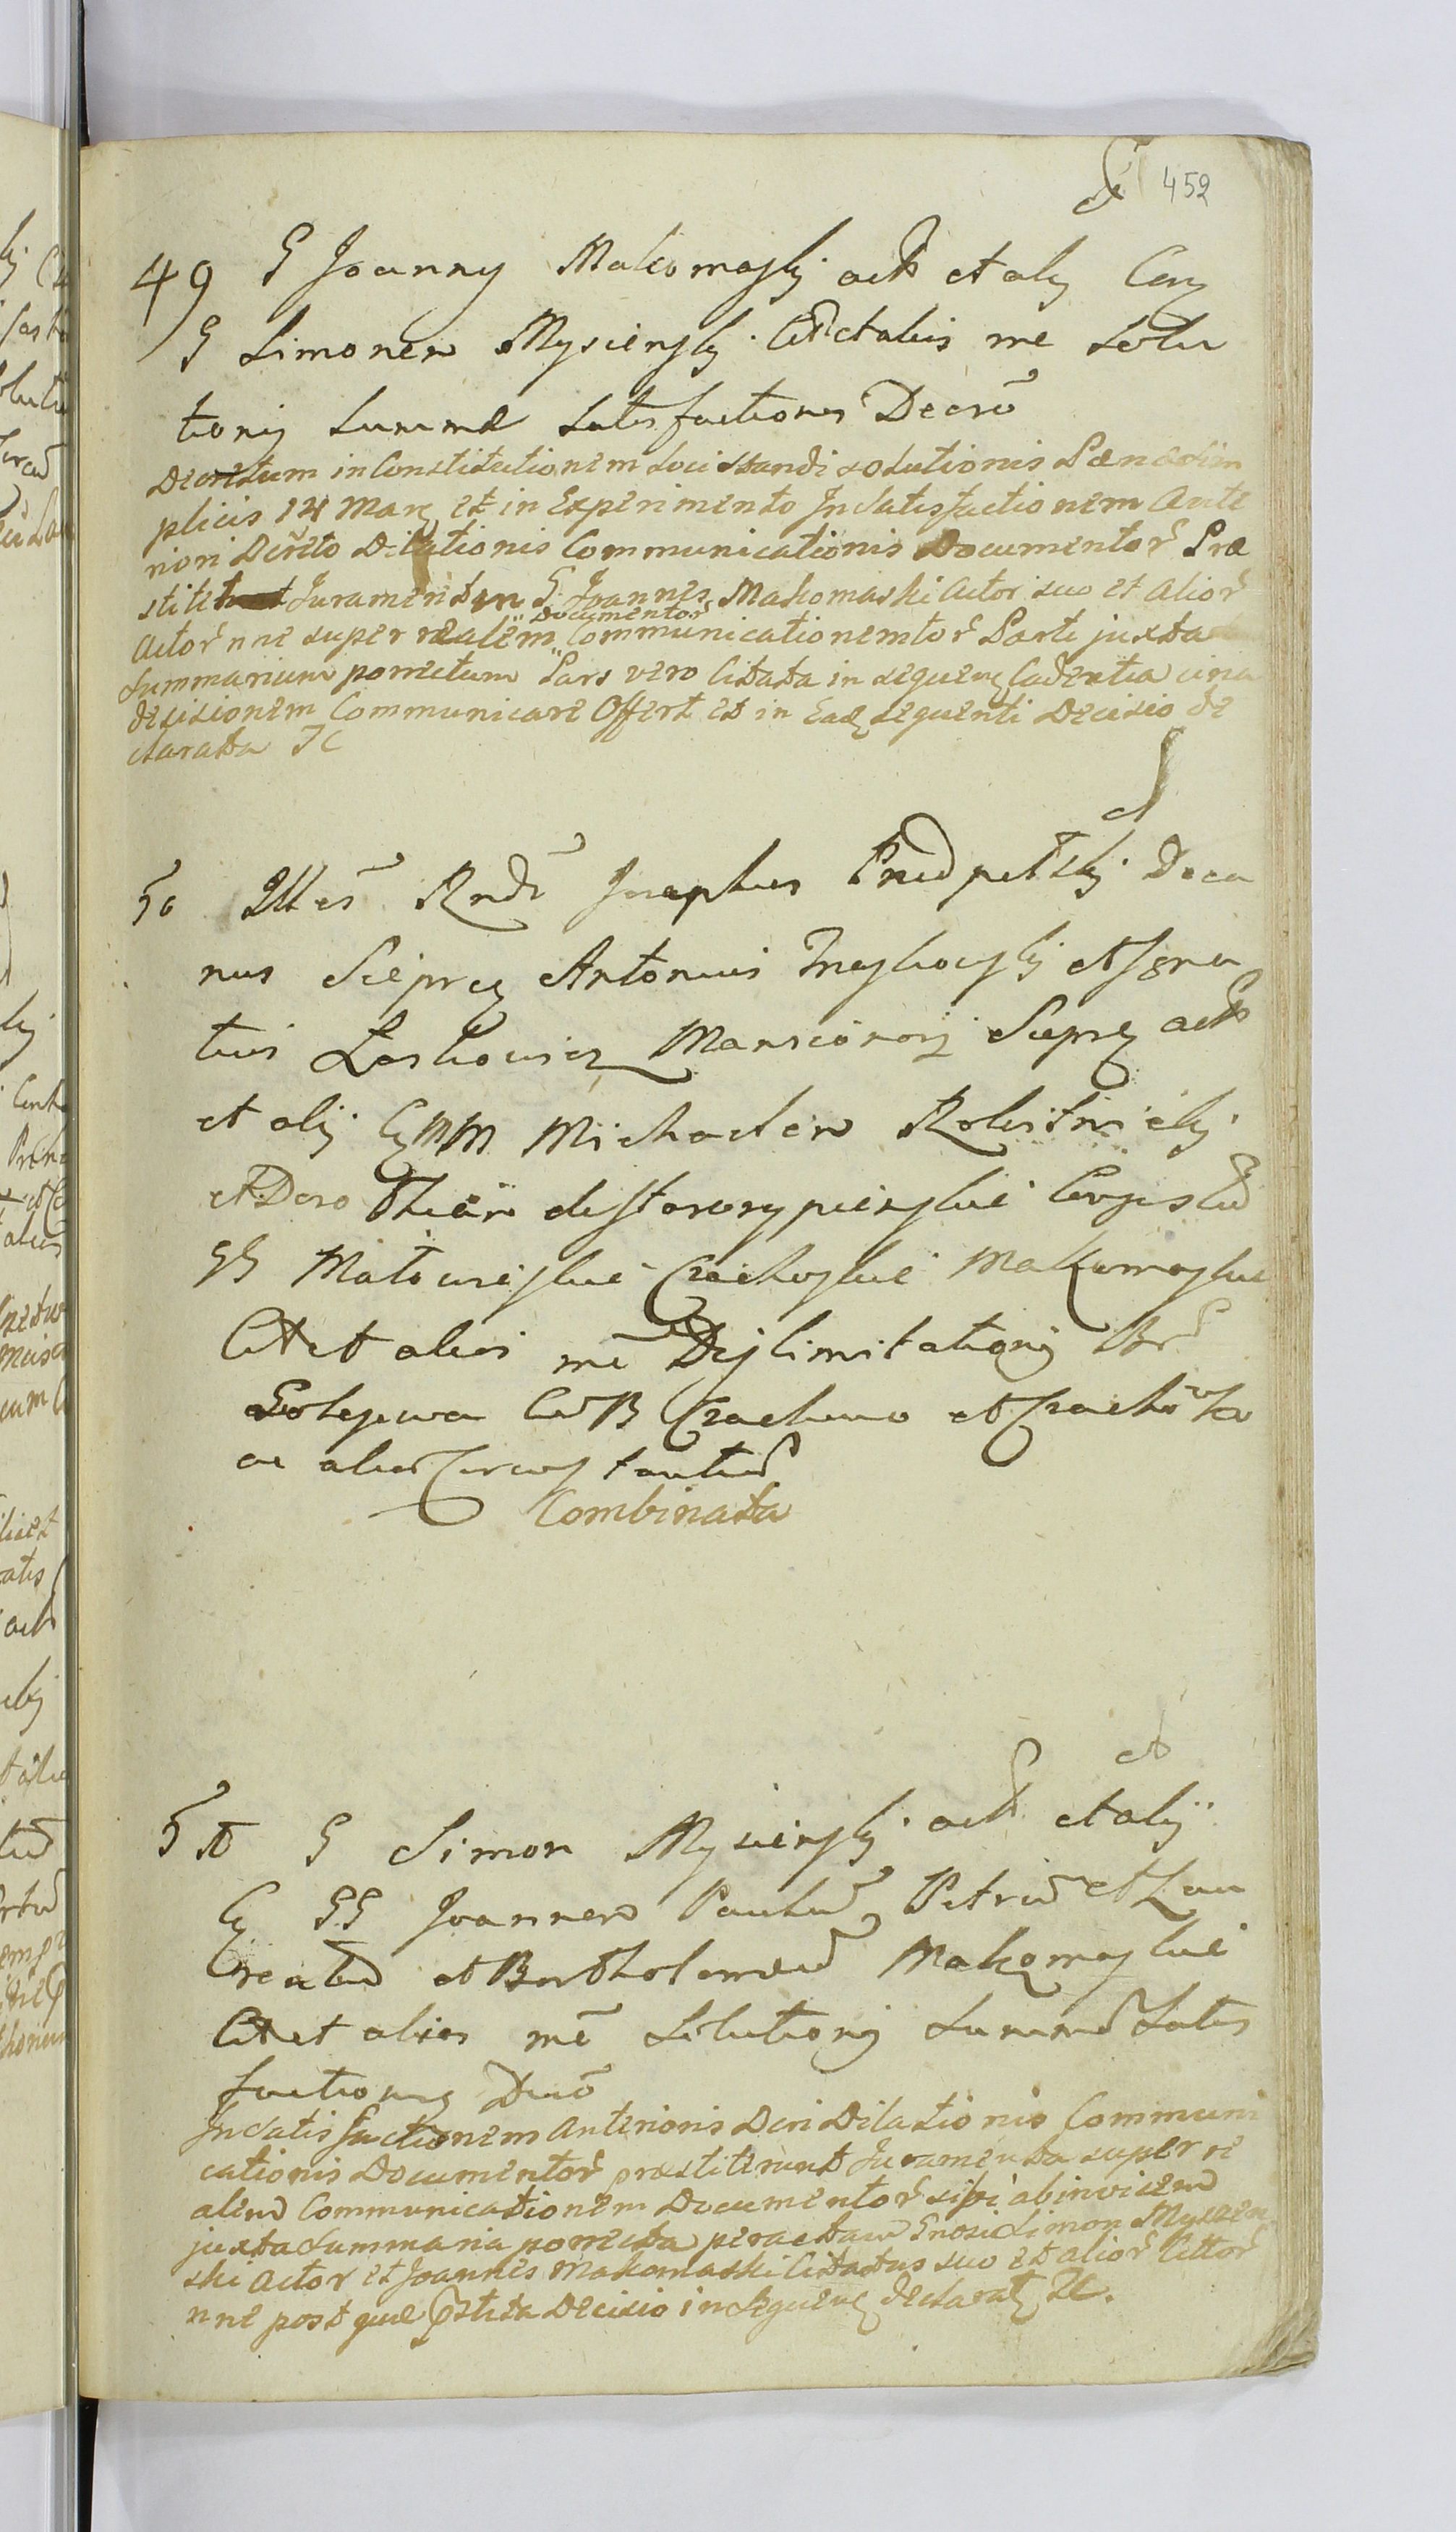 452
49 G Joanny Makomasky act et aly Con
G Simonem Mysiensky Citt et alios me Solu
tionis Summae Satisfactionis Decro
Decretum in Constitutionem Loci standi solutionis Paenae sim
plicis 14 Marc et in Experimento In Satisfactionem Ante
riori Decreto Dilationis Communicationis Documentor Prae
stitit Juramentum G. Joannes Makomaski Actor suo et Alior
Documentor
Actor nne super realem Communicationem Parti juxta
Summarium porrectum Pars vero Citata in sequen Cadentia
decisionem Communicare Offert et in Ead sequenti Decisio de
clarata
50 Illes Rndi Josephus Deca
nus Sieprcz Antonius et Igna
tius Leskowicz Mansionary Sieprcz act
et aly C MM Michaelem Rokitnicky
et Dorotheam de Conjuges
GG Czachoskie Makomaskie
Citt et alios me Dislimitationis Br
Golejewa Cu B Czachowo et Czachowka
ac alior Circumstantiu
Combinata
51 G Simon Mysiensky act et aly
C GG Joannem Paulu Petru et Lau
rentiu et Bartholomeu Makomaskie
Citt et alios me Solutionis Summae Satis
factionis Decro
In Satisfactionem Anterioris Dcri Dilationis Communi
cationis Documentor praestiterunt Juramenta super re
alem Communicationem Documentor sibi abinvicem
juxta Summaria porrecta peractam Gnosi Simon Mysien
ski Actor et Joannes Makomaski Citatus suo et alior Actor
nne post quae Decisio in Sequen declarat